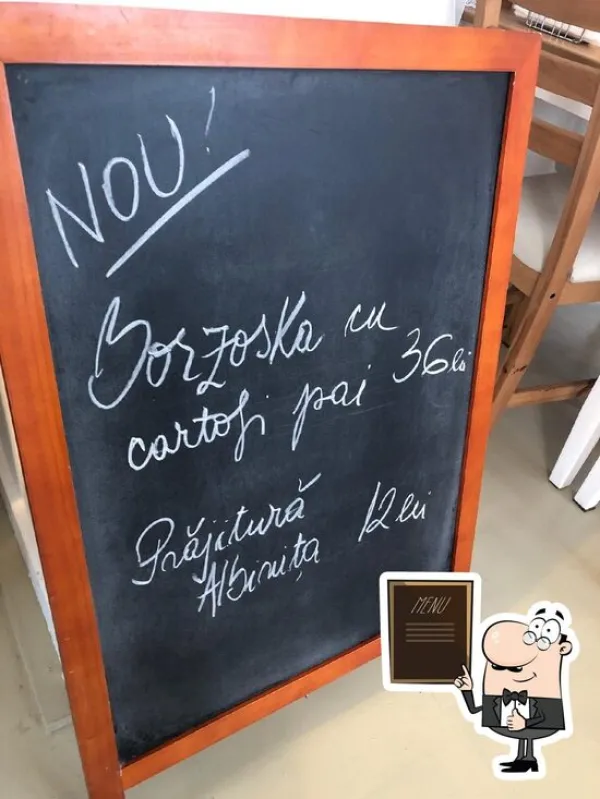 NOU!
Borzoska cu
cartofi pai 36 lei
Prăjitură
Albinița 12 lei
MENU